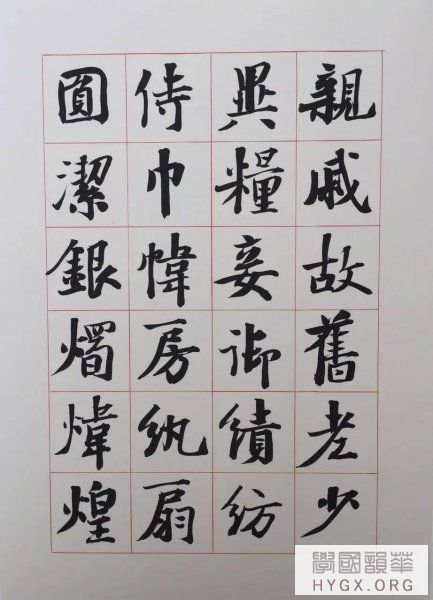 親戚故舊老少
異糧妾御績紡
侍巾帷房紈扇
圓潔銀燭煒煌
華韻國學
HYGX.ORG